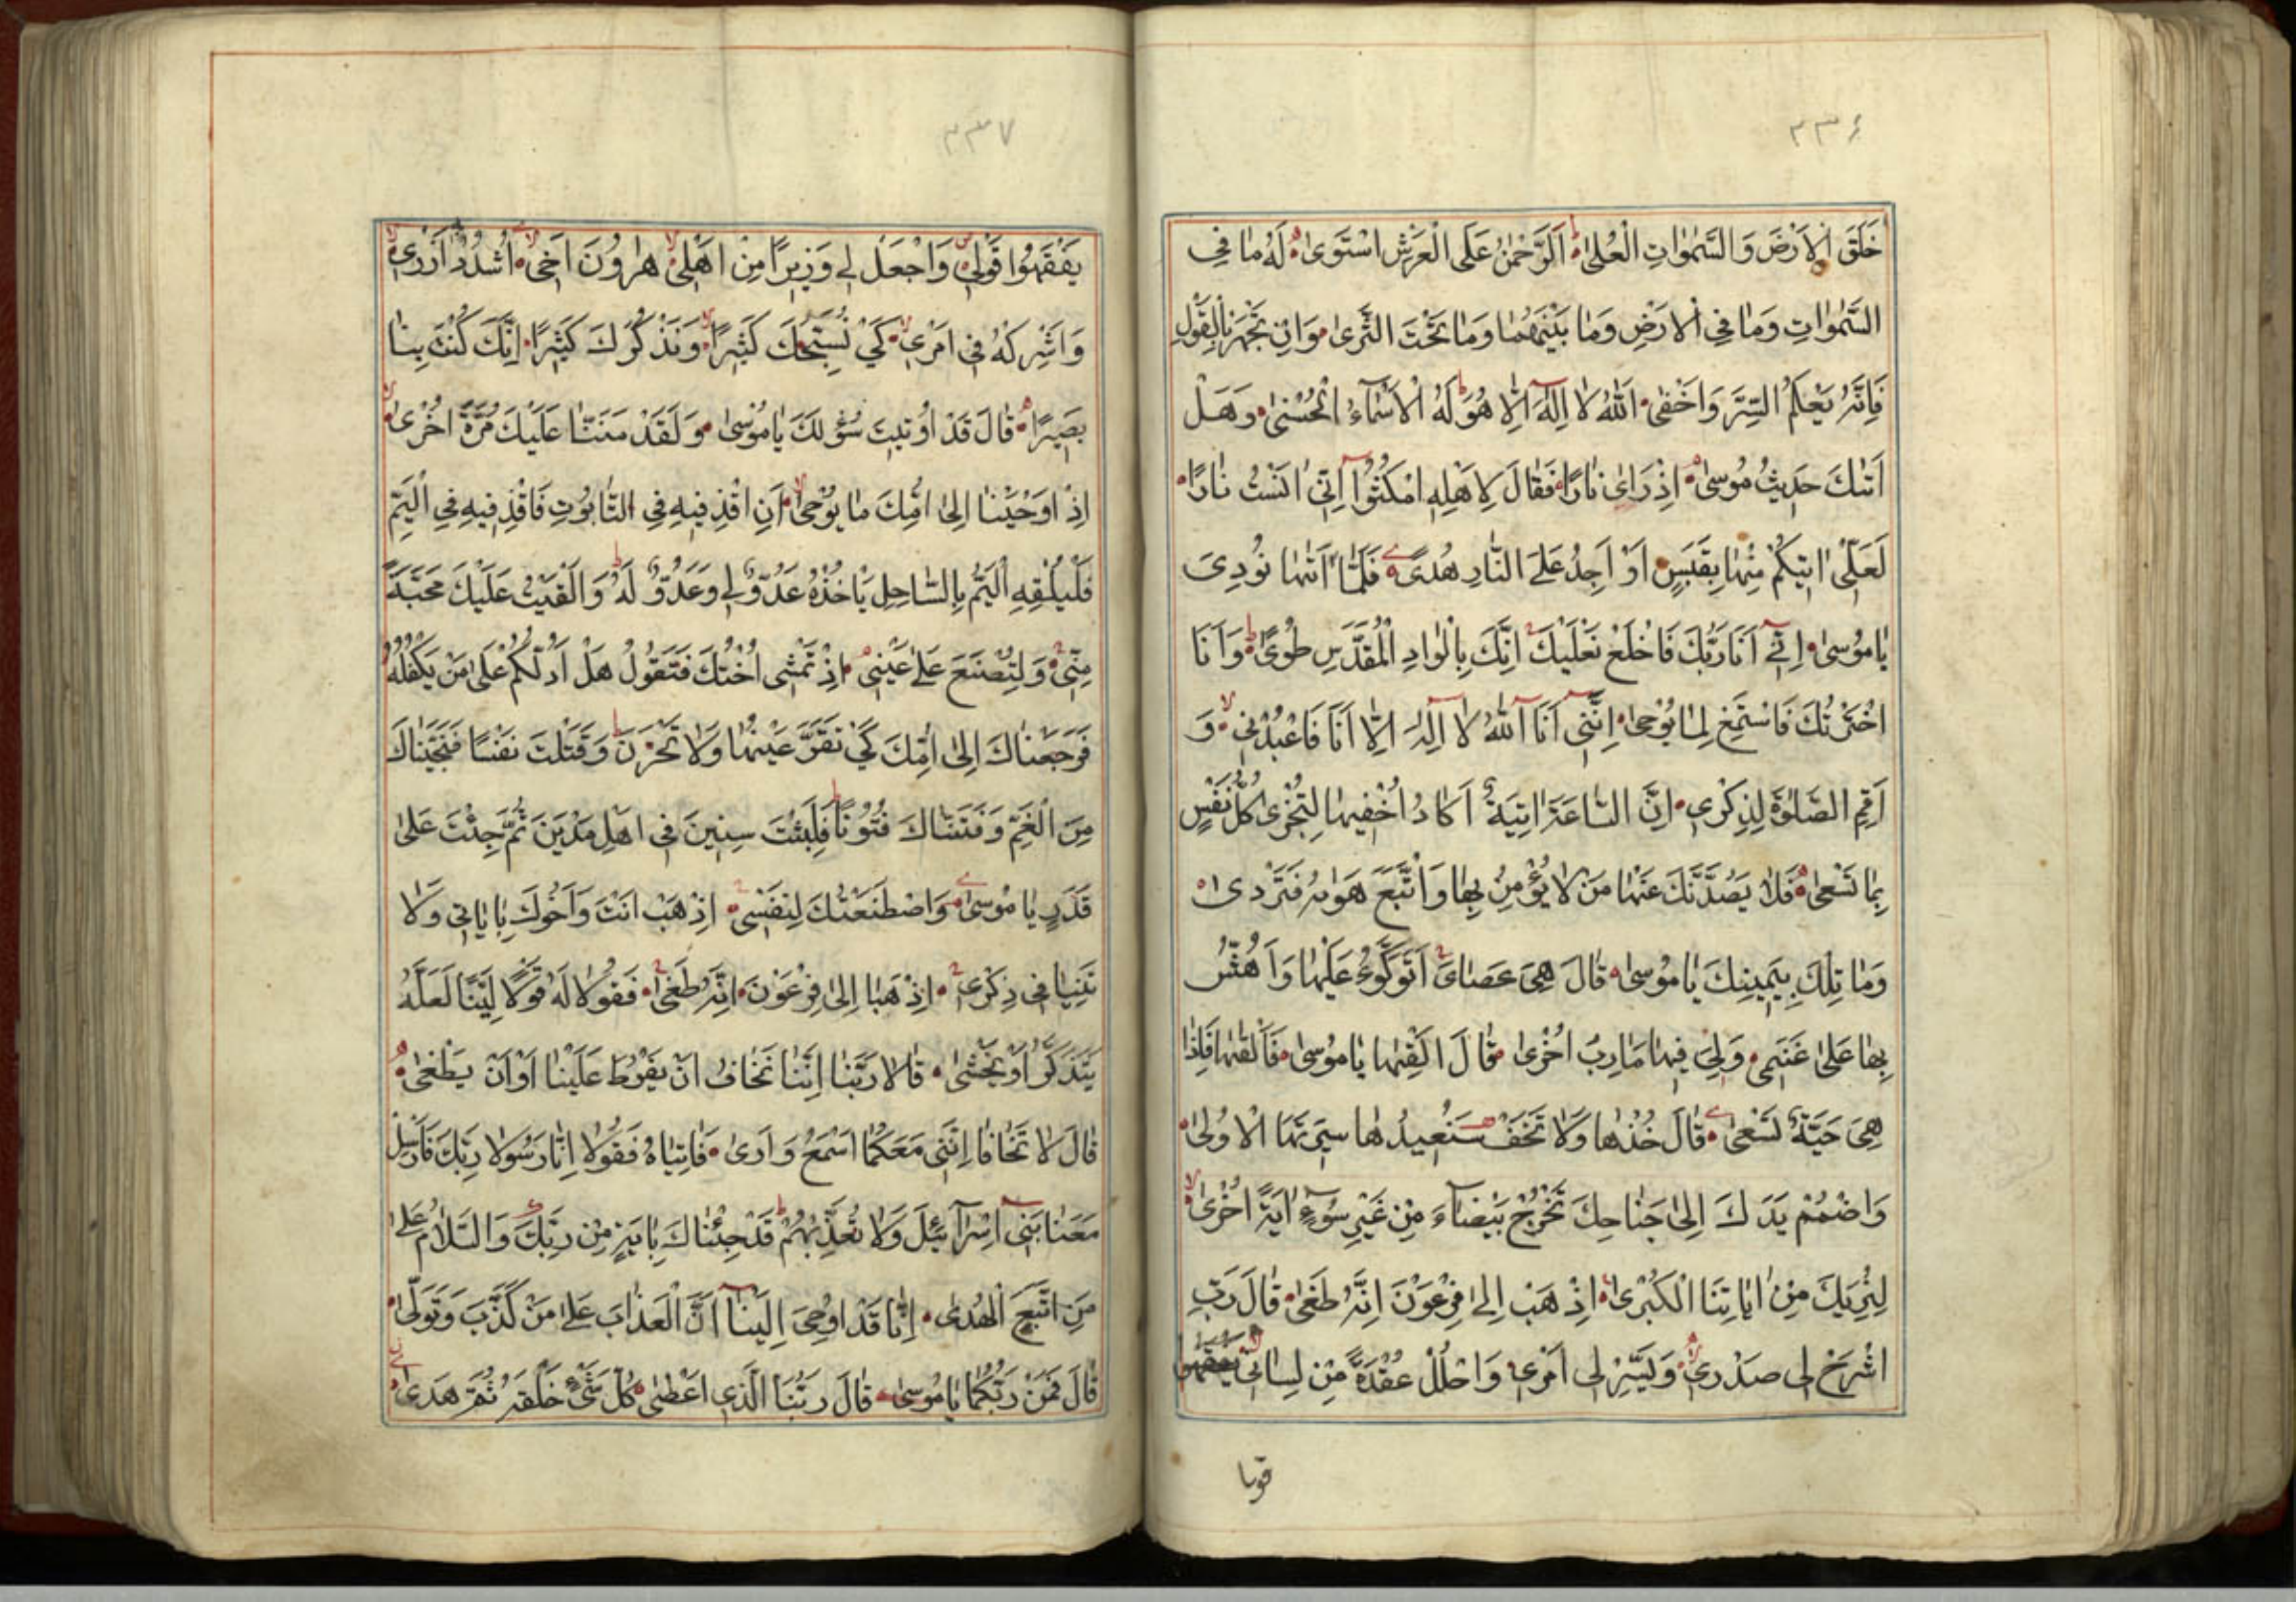 ٣٣٦
خَلَقَ الْاَرْضَ وَالسَّمٰوٰاتِ الْعُلىٰ اَلرَّحْمٰنُ عَلَى الْعَرْشِ اسْتَوىٰ لَهُ مٰا فِي
السَّمٰوٰاتِ وَمٰا فِي الْاَرْضِ وَمٰا بَيْنَهُمٰا وَمٰا تَحْتَ الثَّرىٰ وَاِنْ تَجْهَرْ بِالْقَوْلِ
فَاِنَّهُ يَعْلَمُ السِّرَّ وَاَخْفىٰ اَللّٰهُ لٰا اِلٰهَ اِلّٰا هُوَ لَهُ الْاَسْمٰآءُ الْحُسْنىٰ وَهَلْ
اَتٰىكَ حَدِيثُ مُوسىٰ اِذْ رَاىٰ نٰارًا فَقٰالَ لِاَهْلِهِ امْكُثُوٓا اِنّيٓ اٰنَسْتُ نٰارًا
لَعَلّيٓ اٰتِيكُمْ مِنْهٰا بِقَبَسٍ اَوْ اَجِدُ عَلَى النّٰارِ هُدىً فَلَمّٰٓا اَتٰىهٰا نُودِيَ
يٰا مُوسىٰ اِنّيٓ اَنَا رَبُّكَ فَاخْلَعْ نَعْلَيْكَ اِنَّكَ بِالْوٰادِ الْمُقَدَّسِ طُوىً وَاَنَا
اخْتَرْتُكَ فَاسْتَمِعْ لِمٰا يُوحىٰ اِنَّنيٓ اَنَا اللّٰهُ لٰٓا اِلٰهَ اِلّٰٓا اَنَا فَاعْبُدْني وَ
اَقِمِ الصَّلٰوةَ لِذِكْري اِنَّ السّٰاعَةَ اٰتِيَةٌ اَكٰادُ اُخْفِيهٰا لِتُجْزىٰ كُلُّ نَفْسٍ
بِمٰا تَسْعىٰ فَلٰا يَصُدَّنَّكَ عَنْهٰا مَنْ لٰا يُؤْمِنُ بِهٰا وَاتَّبَعَ هَوٰىهُ فَتَرْدىٰ
وَمٰا تِلْكَ بِيَمِينِكَ يٰا مُوسىٰ قٰالَ هِيَ عَصٰايَ اَتَوَكَّؤُ عَلَيْهٰا وَاَهُشُّ
بِهٰا عَلىٰ غَنَمي وَلِيَ فِيهٰا مَاٰرِبُ اُخْرىٰ قٰالَ اَلْقِهٰا يٰا مُوسىٰ فَاَلْقٰىهٰا فَاِذٰا
هِيَ حَيَّةٌ تَسْعىٰ قٰالَ خُذْهٰا وَلٰا تَخَفْ سَنُعِيدُهٰا سِيرَتَهَا الْاُولىٰ
وَاضْمُمْ يَدَكَ اِلىٰ جَنٰاحِكَ تَخْرُجْ بَيْضٰآءَ مِنْ غَيْرِ سُوٓءٍ اٰيَةً اُخْرىٰ
لِنُرِيَكَ مِنْ اٰيٰاتِنَا الْكُبْرىٰ اِذْهَبْ اِلىٰ فِرْعَوْنَ اِنَّهُ طَغىٰ قٰالَ رَبِّ
اشْرَحْ لي صَدْري وَيَسِّرْ لي اَمْري وَاحْلُلْ عُقْدَةً مِنْ لِسٰاني يَفْقَهُوا
٣٣٧
يَفْقَهُوا قَوْلي وَاجْعَلْ لي وَزِيرًا مِنْ اَهْلي هٰرُونَ اَخي اُشْدُدْ اَزْري
وَاَشْرِكْهُ في اَمْري كَيْ نُسَبِّحَكَ كَثِيرًا وَنَذْكُرَكَ كَثِيرًا اِنَّكَ كُنْتَ بِنٰا
بَصِيرًا قٰالَ قَدْ اُوتِيتَ سُؤْلَكَ يٰا مُوسىٰ وَلَقَدْ مَنَنّٰا عَلَيْكَ مَرَّةً اُخْرىٰ
اِذْ اَوْحَيْنٰا اِلىٰ اُمِّكَ مٰا يُوحىٰ اَنِ اقْذِفِيهِ فِي التّٰابُوتِ فَاقْذِفِيهِ فِي الْيَمِّ
فَلْيُلْقِهِ الْيَمُّ بِالسّٰاحِلِ يَاْخُذْهُ عَدُوٌّ لي وَعَدُوٌّ لَهُ وَاَلْقَيْتُ عَلَيْكَ مَحَبَّةً
مِنّي وَلِتُصْنَعَ عَلىٰ عَيْني اِذْ تَمْشي اُخْتُكَ فَتَقُولُ هَلْ اَدُلُّكُمْ عَلىٰ مَنْ يَكْفُلُهُ
فَرَجَعْنٰاكَ اِلىٰ اُمِّكَ كَيْ تَقَرَّ عَيْنُهٰا وَلٰا تَحْزَنَ وَقَتَلْتَ نَفْسًا فَنَجَّيْنٰاكَ
مِنَ الْغَمِّ وَفَتَنّٰاكَ فُتُونًا فَلَبِثْتَ سِنِينَ في اَهْلِ مَدْيَنَ ثُمَّ جِئْتَ عَلىٰ
قَدَرٍ يٰا مُوسىٰ وَاصْطَنَعْتُكَ لِنَفْسي اِذْهَبْ اَنْتَ وَاَخُوكَ بِاٰيٰاتي وَلٰا
تَنِيٰا في ذِكْري اِذْهَبٰا اِلىٰ فِرْعَوْنَ اِنَّهُ طَغىٰ فَقُولٰا لَهُ قَوْلًا لَيِّنًا لَعَلَّهُ
يَتَذَكَّرُ اَوْ يَخْشىٰ قٰالٰا رَبَّنٰا اِنَّنٰا نَخٰافُ اَنْ يَفْرُطَ عَلَيْنٰا اَوْ اَنْ يَطْغىٰ
قٰالَ لٰا تَخٰافٰا اِنَّني مَعَكُمٰا اَسْمَعُ وَاَرىٰ فَاْتِيٰاهُ فَقُولٰا اِنّٰا رَسُولٰا رَبِّكَ فَاَرْسِلْ
مَعَنٰا بَنيٓ اِسْرٰآئِيلَ وَلٰا تُعَذِّبْهُمْ قَدْ جِئْنٰاكَ بِاٰيَةٍ مِنْ رَبِّكَ وَالسَّلٰامُ عَلىٰ
مَنِ اتَّبَعَ الْهُدىٰ اِنّٰا قَدْ اُوحِيَ اِلَيْنٰآ اَنَّ الْعَذٰابَ عَلىٰ مَنْ كَذَّبَ وَتَوَلّىٰ
قٰالَ فَمَنْ رَبُّكُمٰا يٰا مُوسىٰ قٰالَ رَبُّنَا الَّذي اَعْطىٰ كُلَّ شَيْءٍ خَلْقَهُ ثُمَّ هَدىٰ